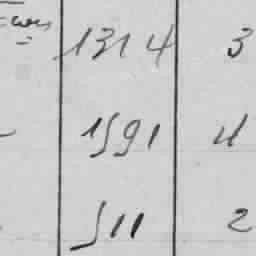 1314 3
1591 4
511 2